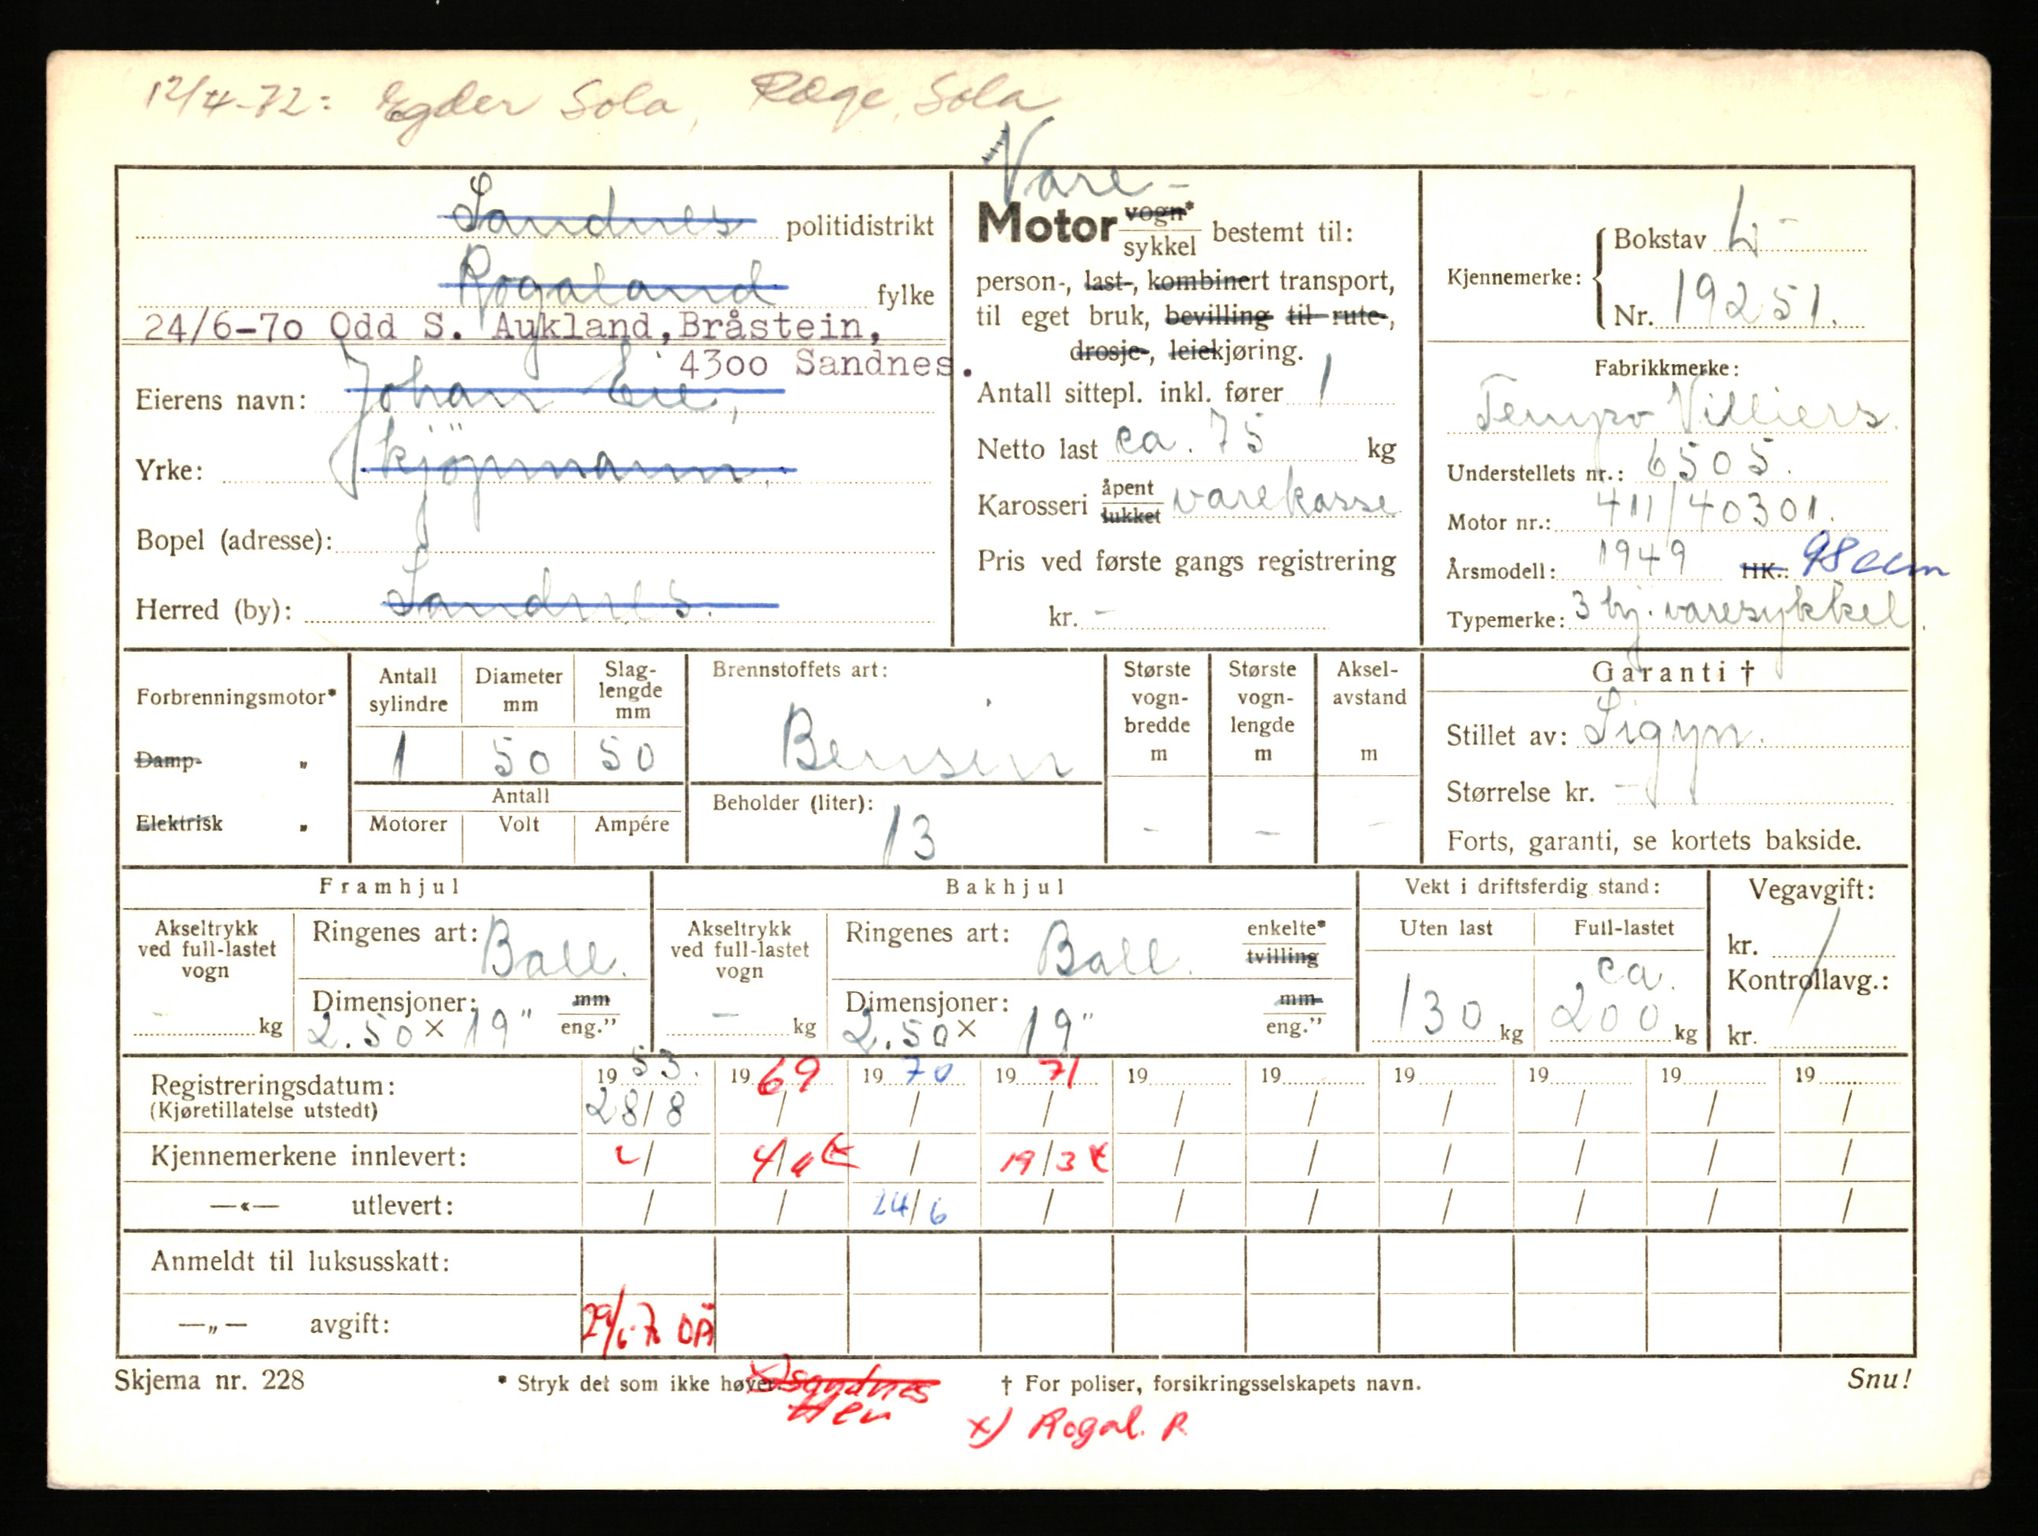 12/4-72: Egder Sola, Ræge, Sola
Vare-
Sandnes politidistrikt
Rogaland fylke
24/6-70 Odd S. Aukland, Bråstein,
4300 Sandnes.
Eierens navn: Johan Eie,
Yrke: kjøpmann.
Bopel (adresse):
Herred (by): Sandnes.
Motor vogn*
sykkel bestemt til:
person-, last-, kombinert transport,
til eget bruk, bevilling til rute-,
drosje-, leiekjøring.
Antall sittepl. inkl. fører 1
Netto last ca. 75 kg
Karosseri åpent
lukket varekasse
Pris ved første gangs registrering
kr. -
Kjennemerke: Bokstav L-
Nr. 19251.
Fabrikkmerke:
Tempo Villiers.
Understellets nr.: 6505.
Motor nr.: 411/40301.
Årsmodell: 1949 HK.: 98 ccm
Typemerke: 3 hj. varesykkel.
Forbrenningsmotor*
Damp- „
Elektrisk „
Antall sylindre Diameter mm Slaglengde mm
1 50 50
Antall
Motorer Volt Ampére
Brennstoffets art:
Bensin
Beholder (liter):
13
Største vogn-bredde m -
Største vogn-lengde m -
Aksel-avstand m -
Garanti †
Stillet av: Sigyn.
Størrelse kr. -
Forts, garanti, se kortets bakside.
Framhjul
Akseltrykk ved full-lastet vogn
- kg
Ringenes art: Ball.
Dimensjoner: mm
2.50 x 19" eng.”
Bakhjul
Akseltrykk ved full-lastet vogn
- kg
Ringenes art: Ball. enkelte*
tvilling
Dimensjoner: mm
2.50 x 19" eng.”
Vekt i driftsferdig stand:
Uten last Full-lastet
130 kg ca. 200 kg
Vegavgift:
kr.
Kontrollavg.:
kr.
Registreringsdatum: 1953. 1969 1970 1971 19 19 19 19 19 19
(Kjøretillatelse utstedt) 28/8 / / / / / / / / /
Kjennemerkene innlevert: / / 19/3 / / / / / /
—«— utlevert: / / 24/6 / / / / / / /
Anmeldt til luksusskatt:
—„— avgift: 29/6-70 OA
Skjema nr. 228 * Stryk det som ikke høver. † For poliser, forsikringsselskapets navn. Snu!
x) Sandnes
x) Rogal. R